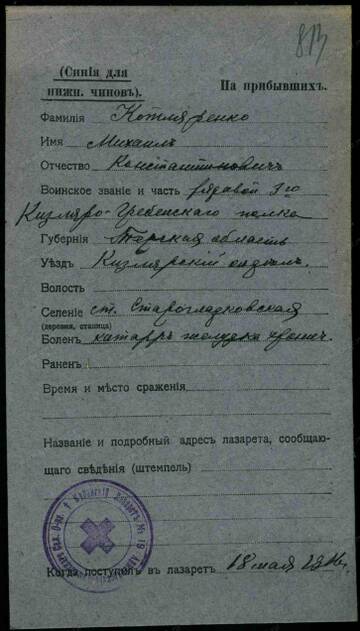 (Синія для
нижн. чиновъ).
На прибывшихъ.
Фамилія Котляренко
Имя Михаилъ
Отчество Константиновичъ
Воинское званіе и часть рядовой 3го
Кизляро-Гребенского полка
Губернія Терская область
Уѣздъ Кизлярскій отдѣлъ.
Волость
Селеніе ст. Старогладковская
(деревня, станица)
Боленъ катарръ желудка хронич.
Раненъ
Время и мѣсто сраженія
Названіе и подробный адресъ лазарета, сообщаю-
щаго свѣдѣнія (штемпель)
Когда поступилъ въ лазаретъ 18 мая